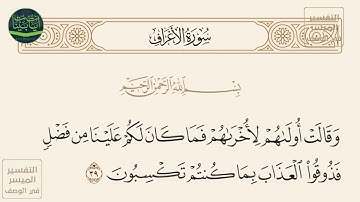 سُورَةُ الأَعْرَافِ
بِسْمِ اللَّهِ الرَّحْمَٰنِ الرَّحِيمِ
وَقَالَتْ أُولَىٰهُمْ لِأُخْرَىٰهُمْ فَمَا كَانَ لَكُمْ عَلَيْنَا مِن فَضْلٍ
فَذُوقُوا۟ الْعَذَابَ بِمَا كُنتُمْ تَكْسِبُونَ ٣٩
التفسير
الميسر
في الوصف